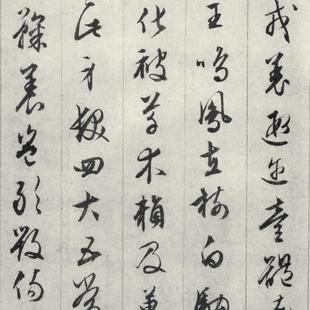 戎羌遐迩壹體
王鳴鳳在樹白駒
化被草木賴及萬
此身髮四大五常
鞠養豈敢毀傷